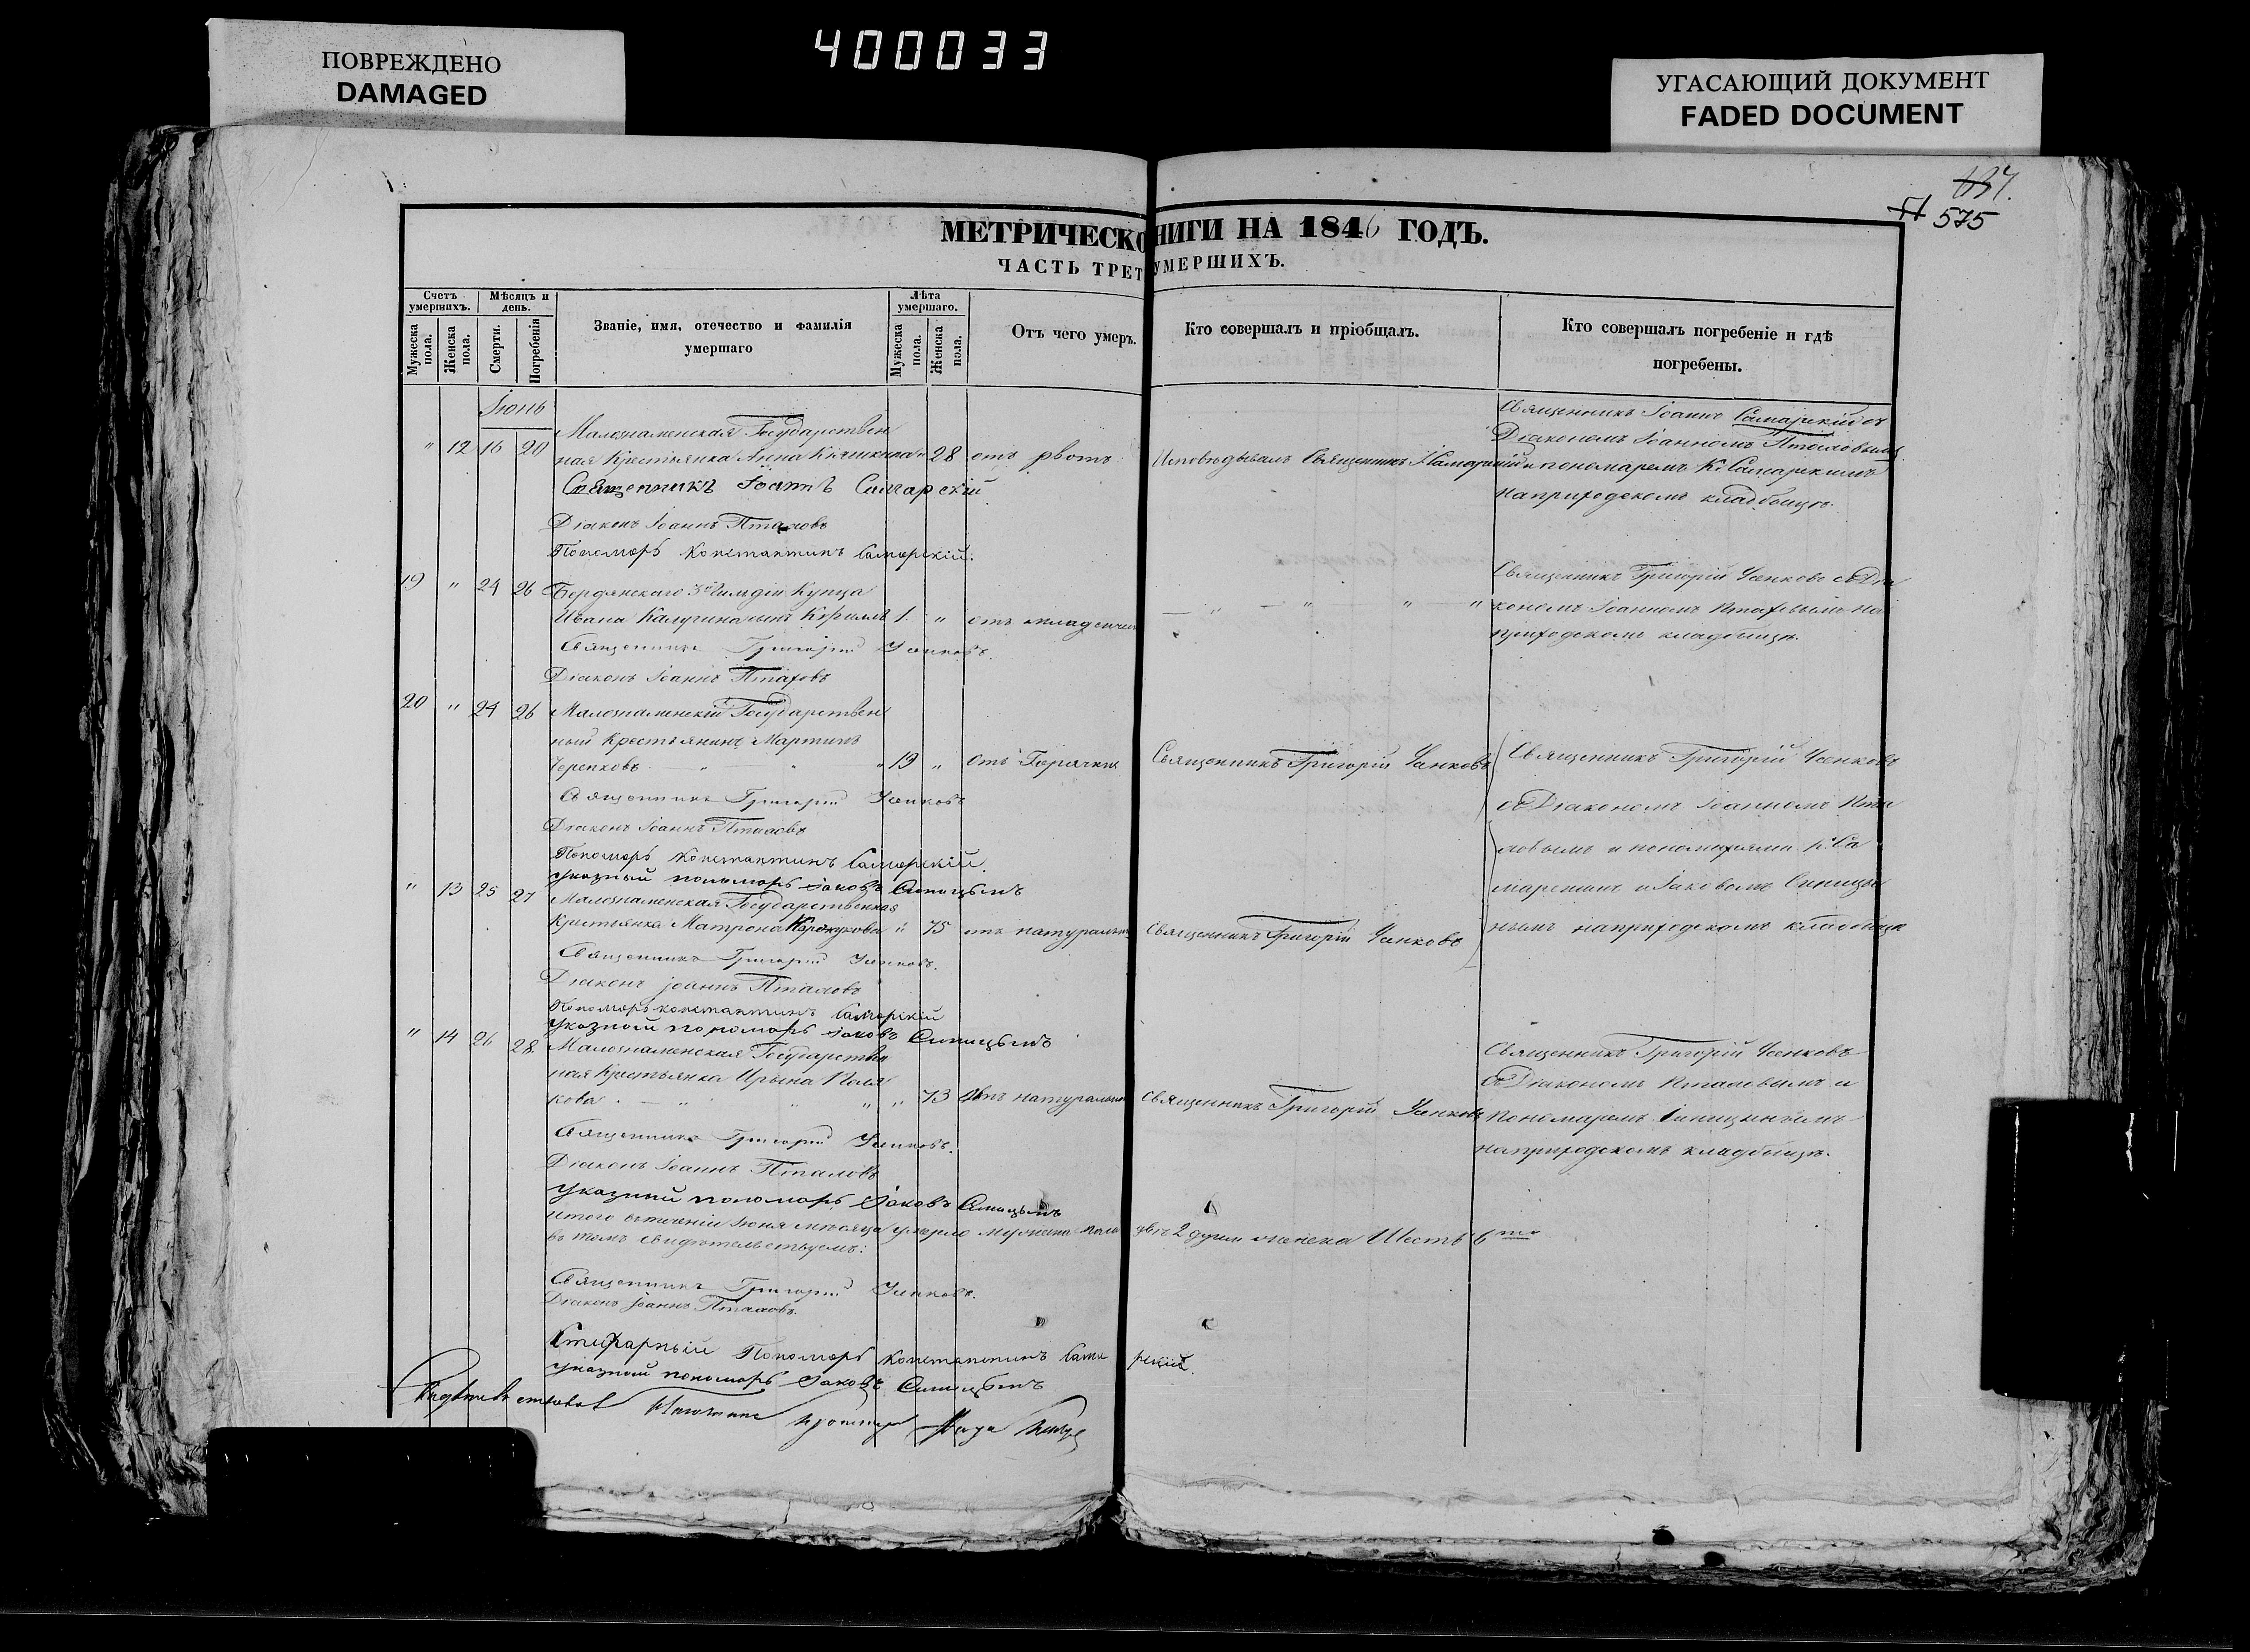 ПОВРЕЖДЕНО
DAMAGED
400033
УГАСАЮЩИЙ ДОКУМЕНТ
FADED DOCUMENT
575
МЕТРИЧЕСКО НИГИ НА 1846 ГОДЪ.
ЧАСТЬ ТРЕТ УМЕРШИХЪ.
Счетъ умершихъ.
Мужеска пола.
Женска пола.
Мѣсяцъ и день.
Смерти.
Погребенія
Званіе, имя, отечество и фамилія
умершаго
Лѣта умершаго.
Мужеска пола.
Женска пола.
Отъ чего умеръ.
Кто совершалъ и пріобщалъ.
Кто совершалъ погребеніе и гдѣ
погребены.
Іюнь
" 12 16 20
Малознаменская Государствен
ная Крестьянка Анна " 28 отъ рвоты
Исповѣдывалъ Священникъ І Самарскій
Священникъ Іоаннъ Самарскій съ
Діакономъ Іоанномъ
и пономаремъ К. Самарскимъ
на приходскомъ кладбищѣ.
Священникъ Іоаннъ Самарскій
Діаконъ Іоаннъ
Пономарь Константинъ Самарскій.
19 " 24 26
Бердянскаго 3й Гильдіи Купца
Ивана Калугина сынъ Кириллъ 1. " отъ младенчес
Священникъ Григорій съ Діа
кономъ Іоанномъ на
приходскомъ кладбищѣ.
Священникъ Григорій
Діаконъ Іоаннъ
20 " 24 26
Малознаменскій Государствен
ный Крестьянинъ Мартинъ
Черепковъ " 19 " Отъ Горячки
Священникъ Григорій
Священникъ Григорій
съ Діакономъ Іоанномъ
и пономарями К. Са
марскимъ и Іаковомъ Синицы
нымъ на приходскомъ кладбищѣ
Священникъ Григорій
Діаконъ Іоаннъ
Пономарь Константинъ Самарскій.
Указный пономарь Іаковъ Синицынъ
" 13 25 27
Малознаменская Государственная
Крестьянка Матрона " 75 отъ натуральн
Священникъ Григорій
Священникъ Григорій
Діаконъ Іоаннъ
Пономарь Константинъ Самарскій
Указный пономарь Іаковъ Синицынъ
" 14 26 28
Малознаменская Государствен
ная Крестьянка Ирына Поля
кова " " 73 Отъ натуральн
Священникъ Григорій
Священникъ Григорій
съ Діакономъ и
Пономаремъ Синицынымъ
на приходскомъ кладбищѣ.
Священникъ Григорій
Діаконъ Іоаннъ
Указный пономарь Іаковъ Синицынъ
Итого въ теченіи Іюня мѣсяца умерло мужеска пола 2 души женска Шесть 6
въ томъ свидѣтельствуемъ:
Священникъ Григорій
Діаконъ Іоаннъ
Стихарный Пономарь Константинъ Сама рскій.
Указный пономарь Іаковъ Синицынъ